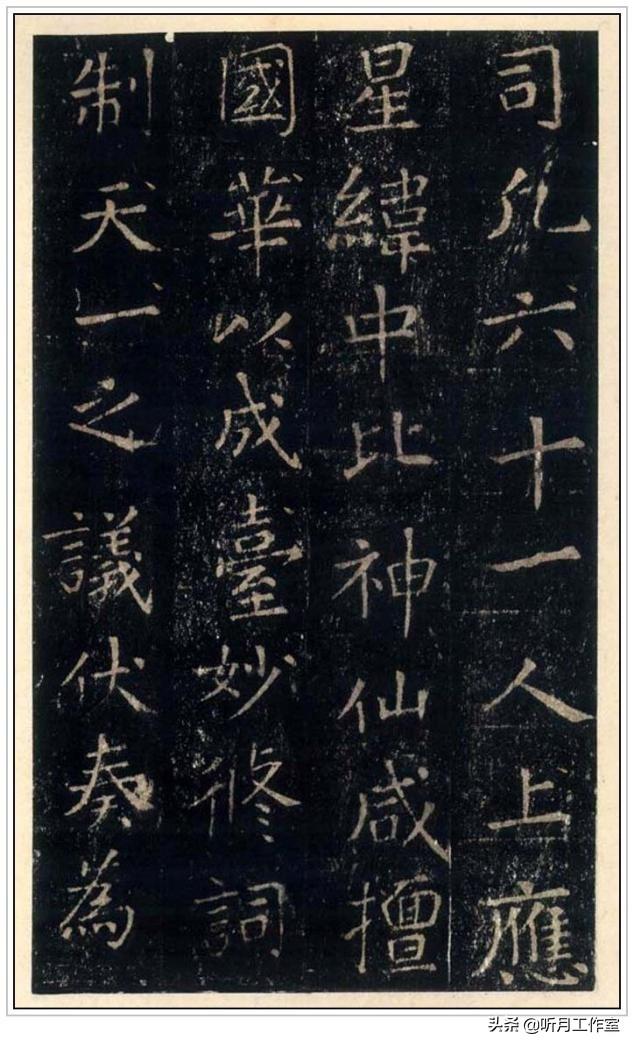 司凡六十一人上應
星緯中比神仙咸擅
國華以成臺妙修詞
制天一之議伏奏為
头条 @听月工作室